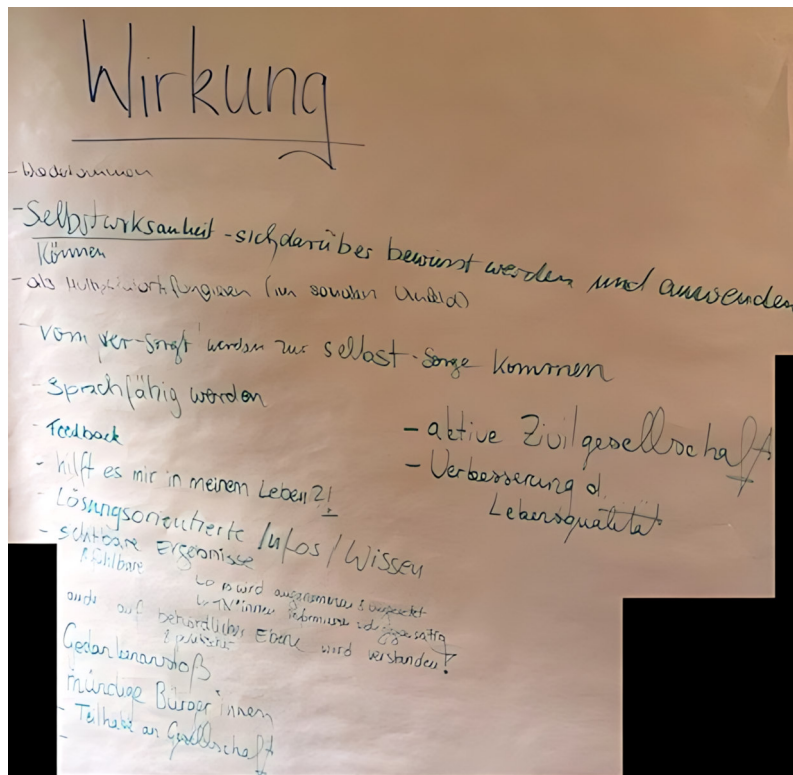 Wirkung
- Wiederkommen
- Selbstwirksamkeit - sich darüber bewusst werden und anwenden
Können
- als Multiplikator fungieren (im sozialen Umfeld)
- vom ver-sorgt werden zur selbst-sorge kommen
- Sprachfähig werden
- Feedback
- hilft es mir in meinem Leben?!
- Lösungsorientierte Infos / Wissen
- sichtbare Ergebnisse
& fühlbare
es wird angenommen &
TN*innen informieren sich gegenseitig
auch auf behördlicher Ebene wird verstanden!
& politischer
Gedankenanstoß
mündige Bürger*innen
- Teilhabe an Gesellschaft
-
- aktive Zivilgesellschaft
- Verbesserung d.
Lebensqualität